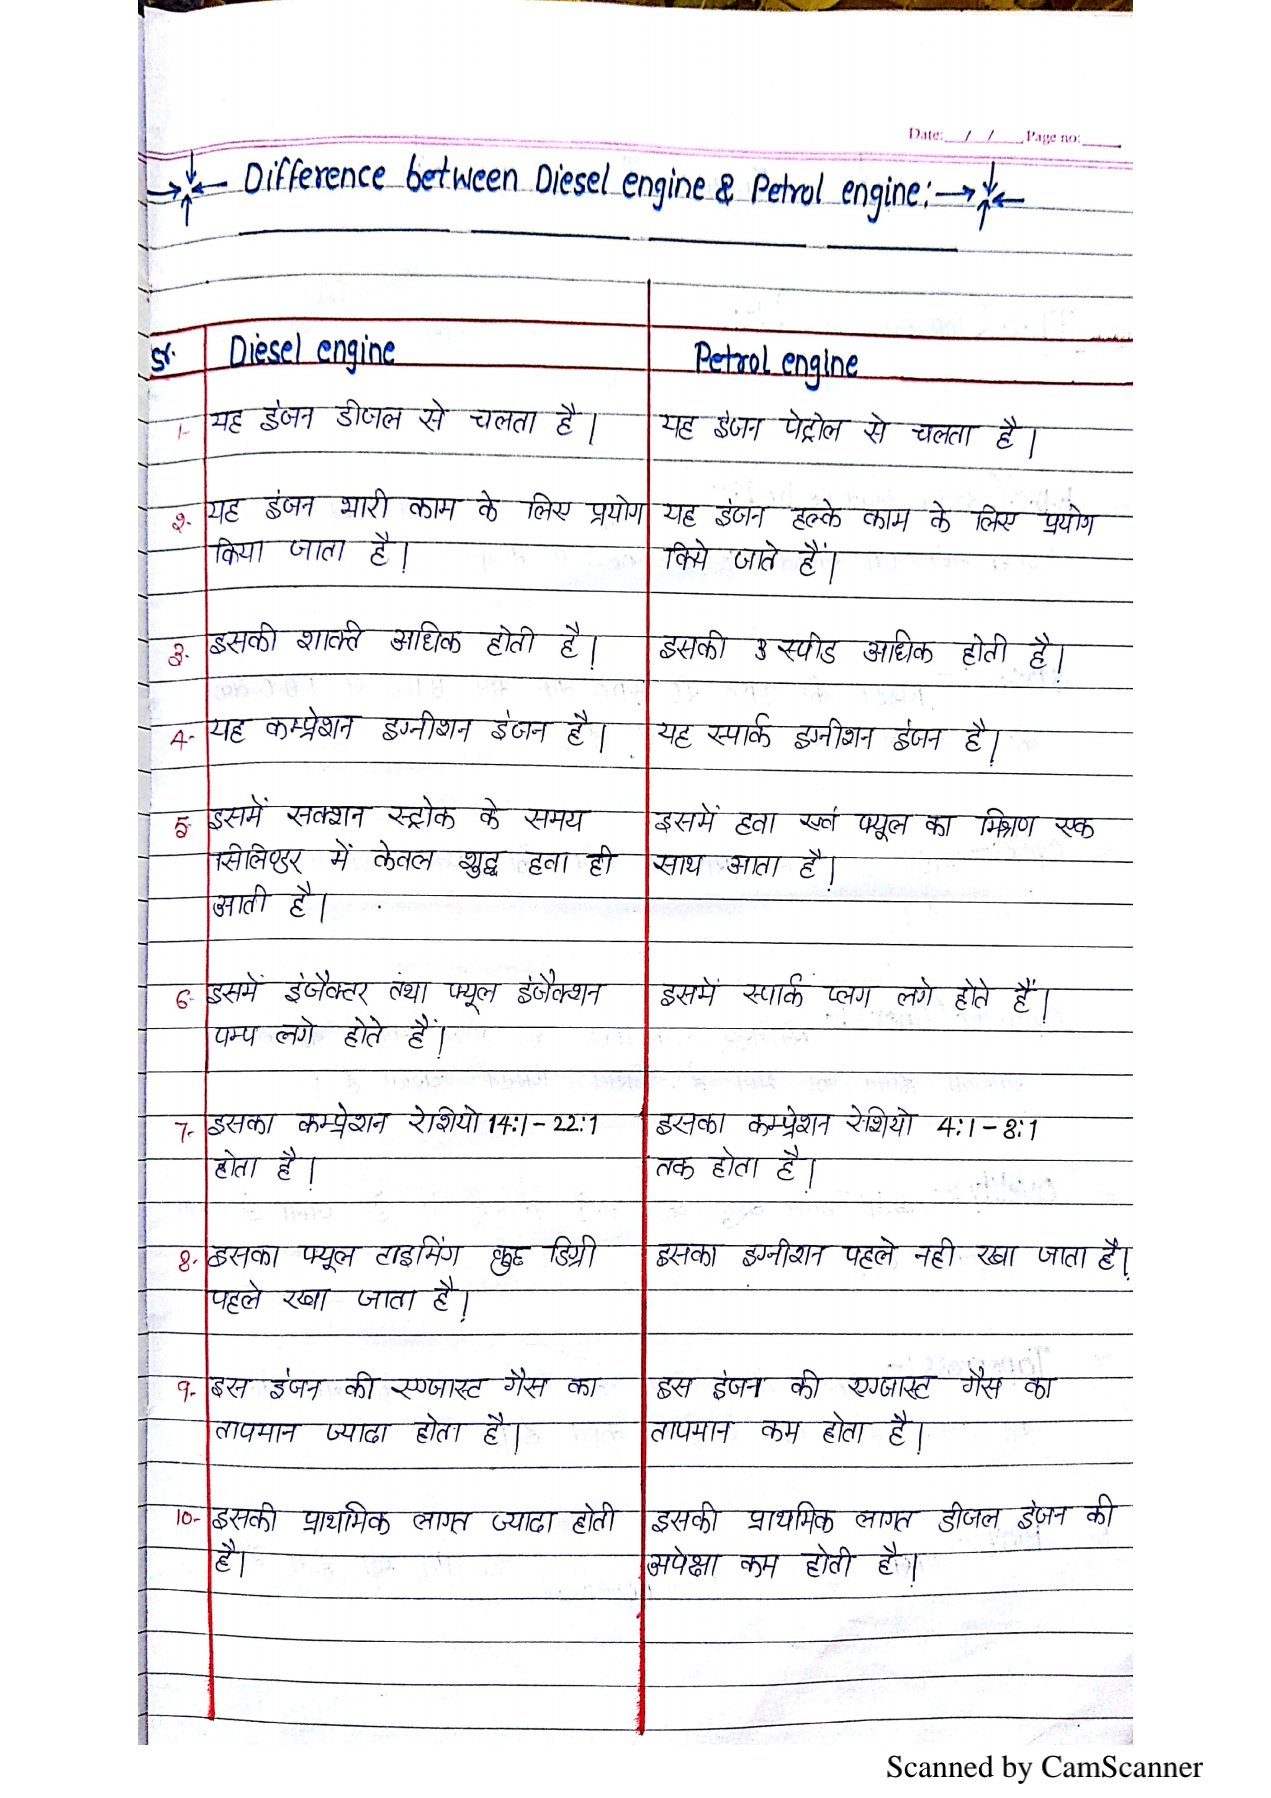 Date: __/__/____ Page no: ____
Difference between Diesel engine & Petrol engine:
Sr. Diesel engine Petrol engine
1- यह इंजन डीजल से चलता है। यह इंजन पेट्रोल से चलता है।
2- यह इंजन भारी काम के लिए प्रयोग यह इंजन हल्के काम के लिए प्रयोग
किया जाता है। किये जाते हैं।
3- इसकी शक्ति अधिक होती है। इसकी स्पीड अधिक होती है।
4- यह कम्प्रेशन इग्नीशन इंजन है। यह स्पार्क इग्नीशन इंजन है।
5- इसमें सक्शन स्ट्रोक के समय इसमें हवा एवं फ्यूल का मिश्रण एक
सिलिण्डर में केवल शुद्ध हवा ही साथ आता है।
आती है।
6- इसमें इंजैक्टर तथा फ्यूल इंजैक्शन इसमें स्पार्क प्लग लगे होते हैं।
पम्प लगे होते हैं।
7- इसका कम्प्रेशन रेशियो 14:1 – 22:1 इसका कम्प्रेशन रेशियो 4:1 – 8:1
होता है। तक होता है।
8- इसका फ्यूल टाइमिंग कुछ डिग्री इसका इग्नीशन पहले नही रखा जाता है।
पहले रखा जाता है।
9- इस इंजन की एग्जास्ट गैस का इस इंजन की एग्जास्ट गैस का
तापमान ज्यादा होता है। तापमान कम होता है।
10- इसकी प्राथमिक लागत ज्यादा होती इसकी प्राथमिक लागत डीजल इंजन की
है। अपेक्षा कम होती है।
Scanned by CamScanner